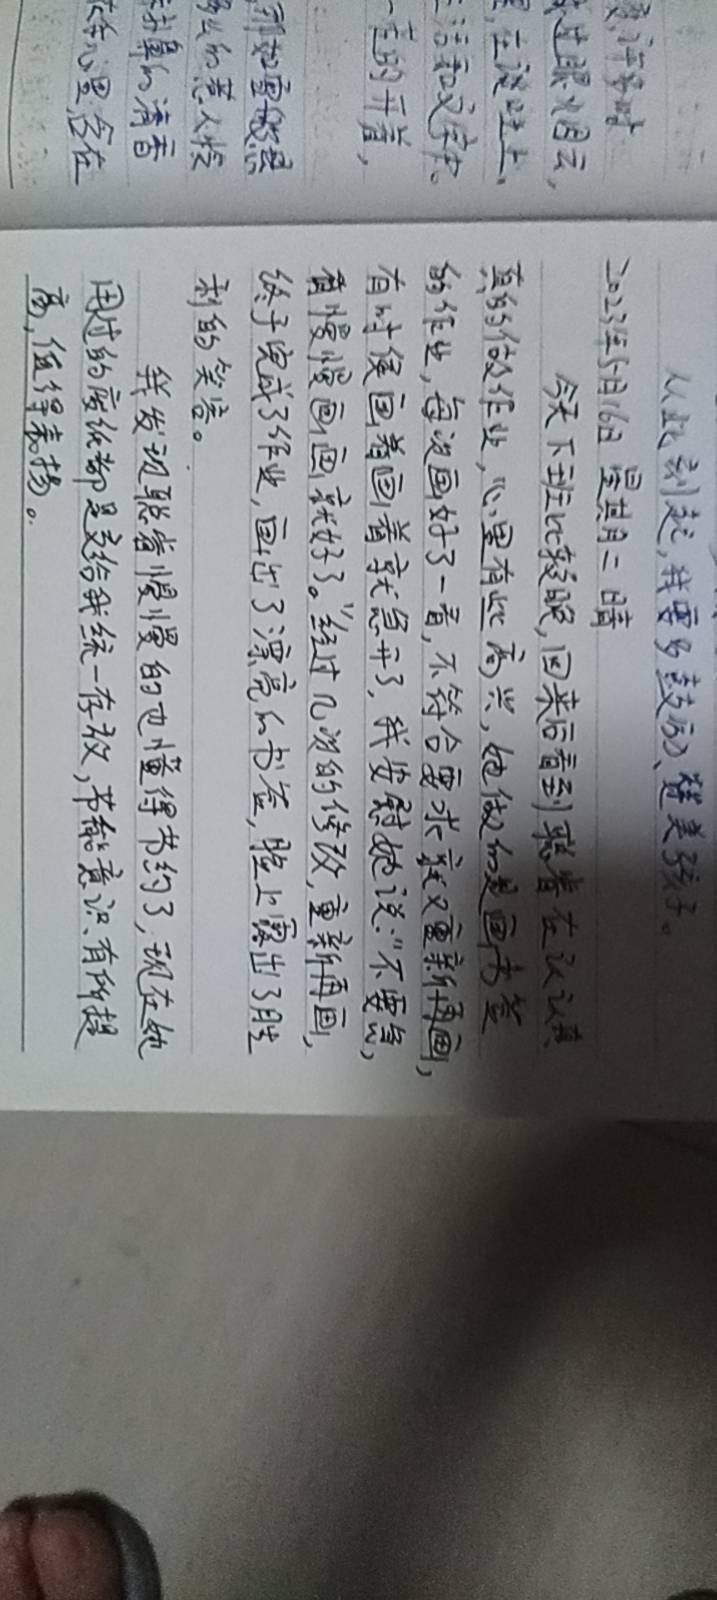 从此刻起,我要多鼓励、赞美孩子。
2023年5月16日 星期二 晴
今天下班比较晚,回来后看到聪睿在认认真
真的做作业,心里有些高兴,她做的是画书签
的作业,每次画好了一看,不符合要求就又重新再画,
有时候画着画着就急了,我安慰她说:"不要急,
慢慢画画就好了。"经过几次的修改,重新再画,
终于完成了作业,画出了漂亮的书签,脸上露出了胜
利的笑容。
我发现聪睿慢慢的也懂得节约了,现在她
用过的废纸都是交给我统一存放,节能意识、有所提
高,值得表扬。
过眼烟云,
生活和文字中。
一笔的开首,